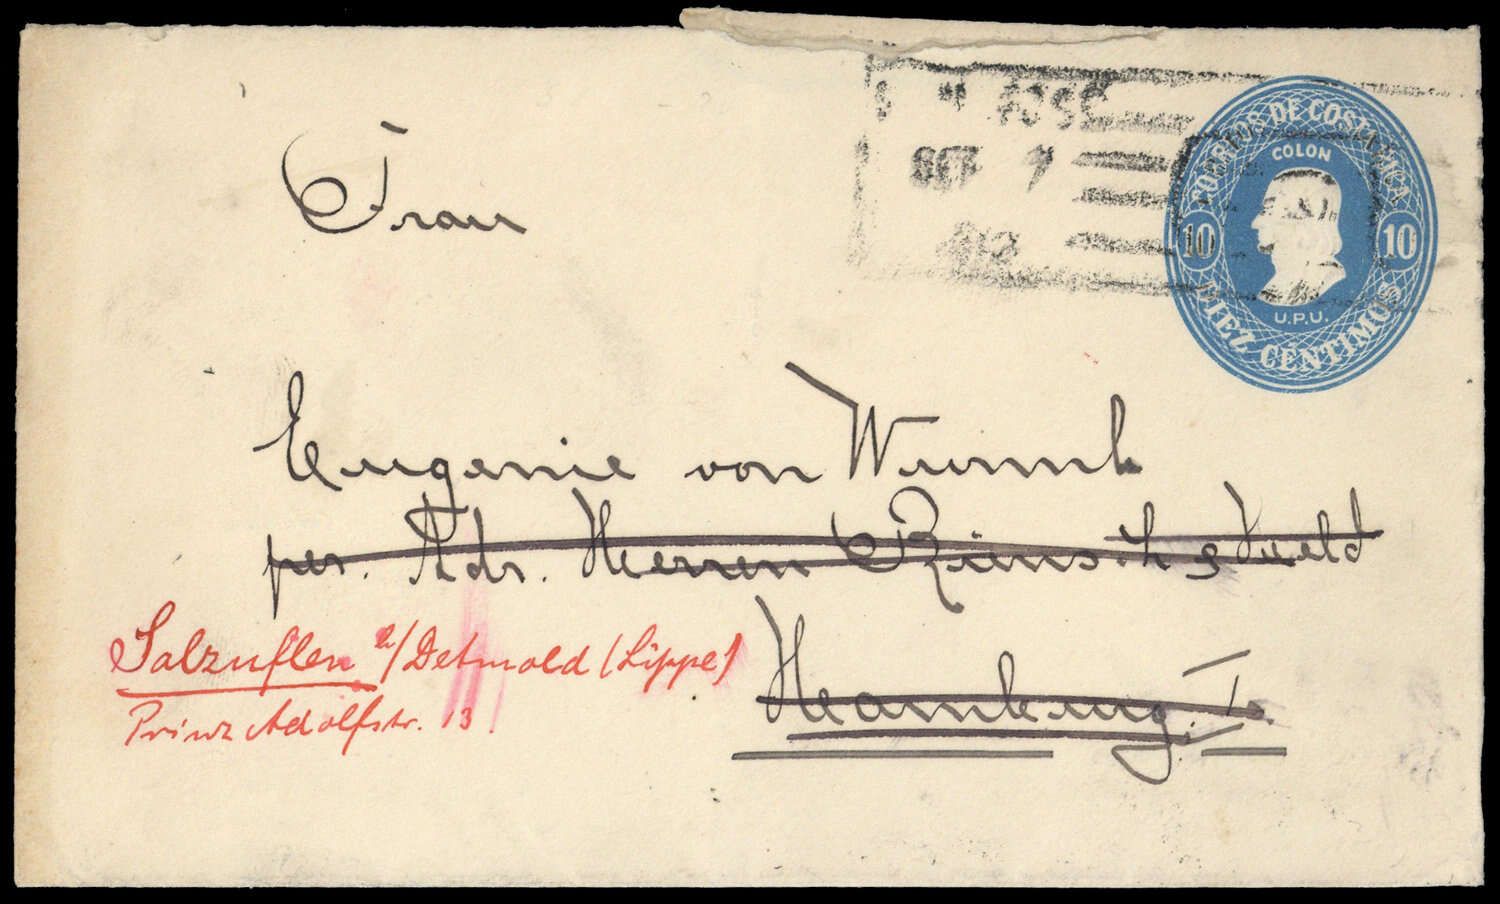 CORREOS DE COSTA RICA
COLON
10 10
U.P.U.
DIEZ CENTIMOS
SEP 7
Frau
Eugenie von Wurmb
per. Adr. Herren
Hamburg. I.
Salzuflen b/Detmold (Lippe)
Prinz Adolfstr. 13.